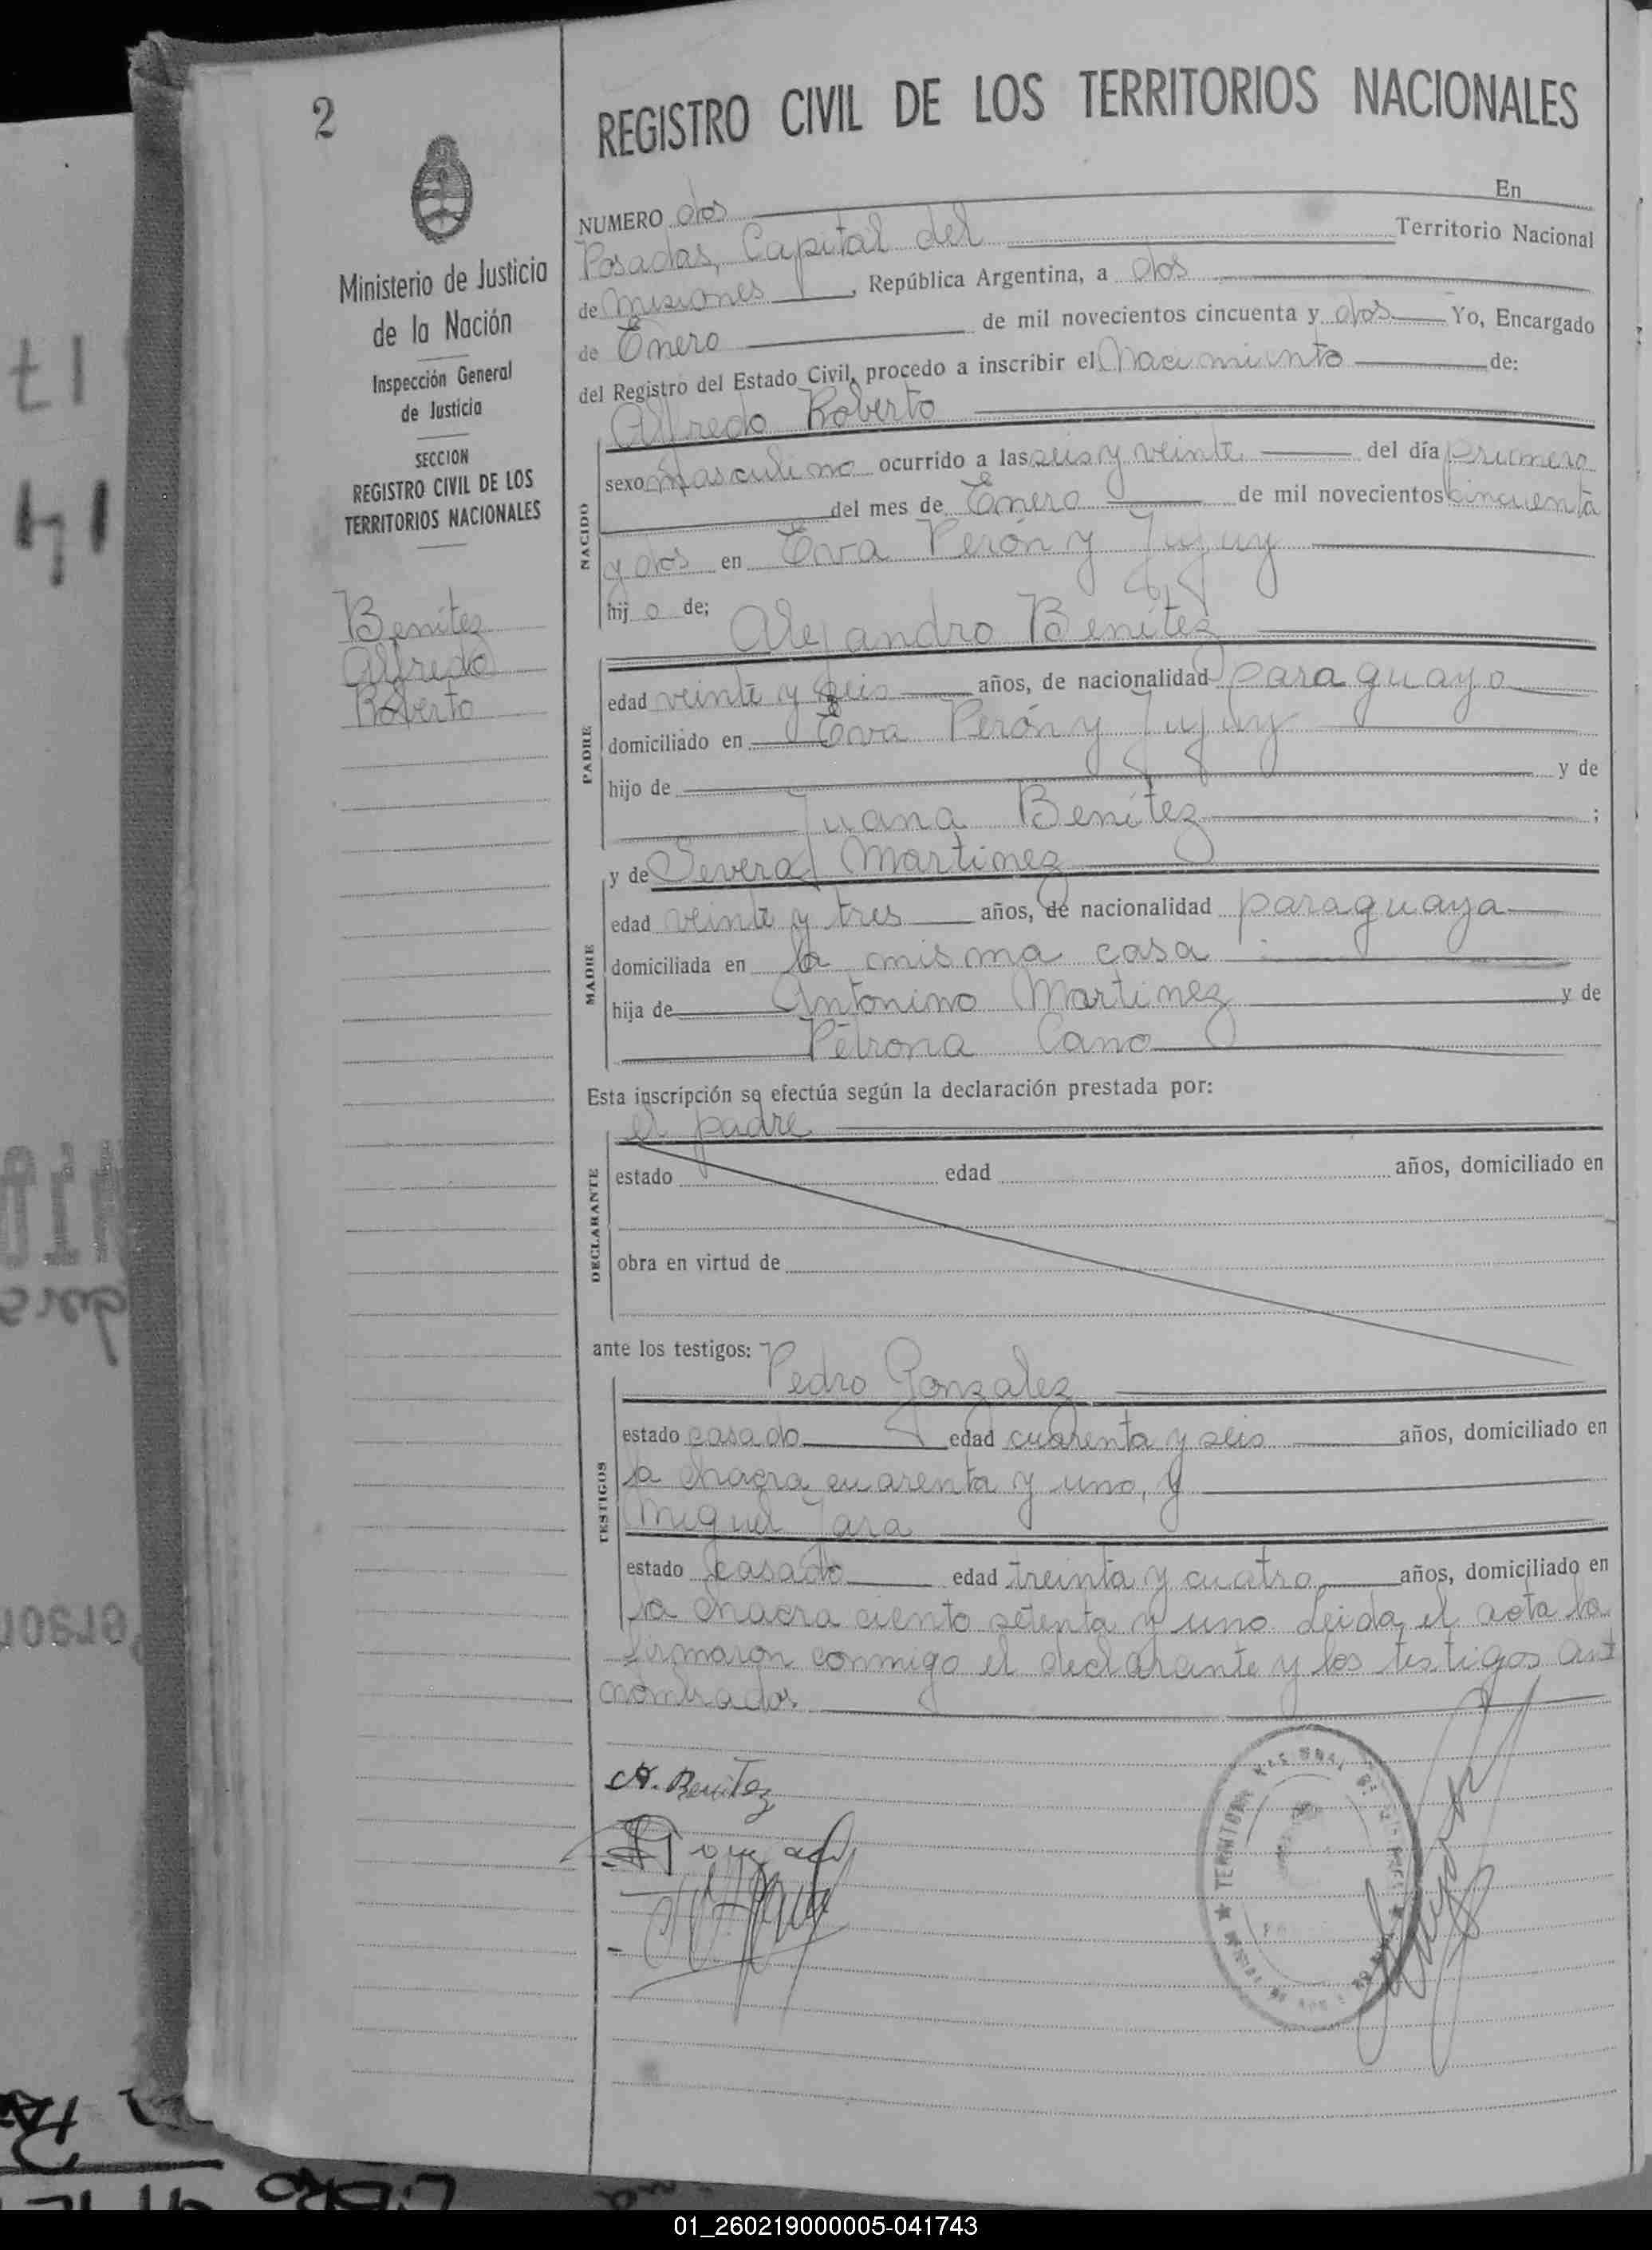 2
Ministerio de Justicia
de la Nación
Inspección General
de Justicia
SECCION
REGISTRO CIVIL DE LOS
TERRITORIOS NACIONALES
Benítez
Alfredo
Roberto
REGISTRO CIVIL DE LOS TERRITORIOS NACIONALES
NUMERO dos En
Posadas, Capital del Territorio Nacional
de Misiones, República Argentina, a dos
de Enero de mil novecientos cincuenta y dos Yo, Encargado
del Registro del Estado Civil, procedo a inscribir el Nacimiento de:
Alfredo Roberto
NACIDO
sexo Masculino ocurrido a las seis y veinte del día primero
del mes de Enero de mil novecientos cincuenta
y dos en Eva Perón y Jujuy
hijo de;
Alejandro Benítez
PADRE
edad veinte y seis años, de nacionalidad paraguayo
domiciliado en Eva Perón y Jujuy
hijo de y de
Juana Benítez ;
y de Severa Martinez
MADRE
edad veinte y tres años, de nacionalidad paraguaya
domiciliada en la misma casa
hija de Antonino Martinez y de
Petrona Cano
Esta inscripción se efectúa según la declaración prestada por:
el padre
DECLARANTE
estado edad años, domiciliado en
obra en virtud de
ante los testigos: Pedro Gonzalez
TESTIGOS
estado casado edad cuarenta y seis años, domiciliado en
la chacra cuarenta y uno, y
Miguel Jara
estado casado edad treinta y cuatro años, domiciliado en
la chacra ciento setenta y uno Leida el acta la
firmaron conmigo el declarante y los testigos ant
nombrados.
A. Benítez
TERRITORIO
LIBRO
01_260219000005-041743